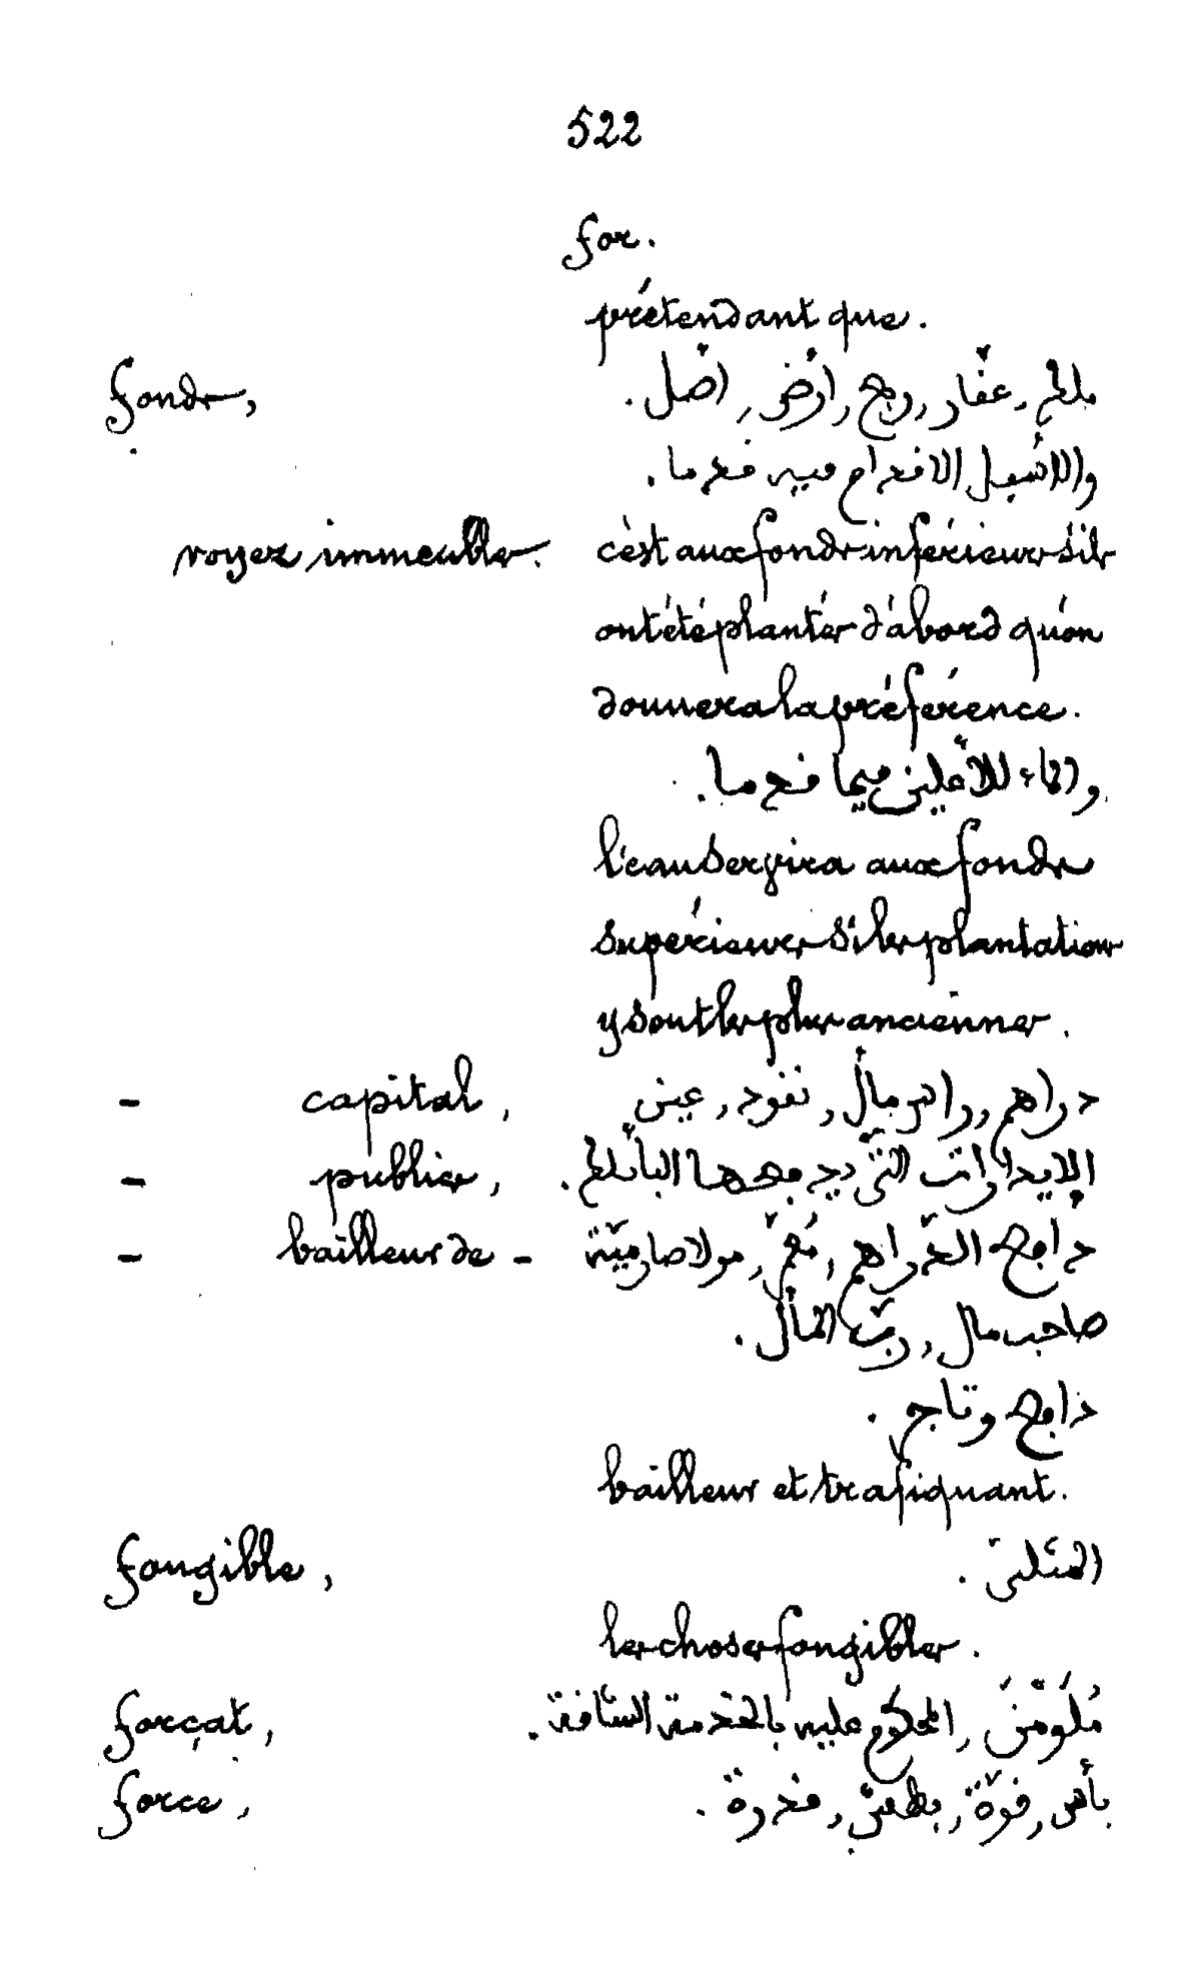 522
for.
prétendant que.
fonds, ملك, عقار, ربع, ارْض, اصْل.
والاسْفل الاقدام فيه قدما.
voyez immeubles. c'est aux fonds inférieurs s'ils
ont été plantés d'abord qu'on
donnera la préférence.
والماء للأعلين فيما قدما.
l'eau servira aux fonds
supérieurs si les plantations
y sont les plus anciennes.
- capital, دراهم, راس مال, نقود, عين
- publics, الايدارات التي يدبعها البايلك.
- bailleur de - دافع الدّراهم, مولا صارميّة
صاحب مال, ربّ المال.
دافع وتاجر.
bailleur et trafiquant.
fongible, المثلى.
les choses fongibles.
forçat, المحكوم عليه بالخدمة الشاقة.
force, بأس, قوّة, بطش, قدرة.